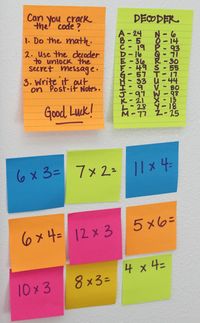 Can you crack
the code?
1. Do the math.
2. Use the decoder
to unlock the
secret message.
3. Write it out
on Post-it Notes.
Good Luck!
DECODER
A - 24 N - 6
B - 5 O - 14
C - 19 P - 93
D - 16 Q - 71
E - 36 R - 30
F - 49 S - 55
G - 57 T - 17
H - 33 U - 44
I - 9 V - 80
J - 97
K - 21 X - 13
L - 28 Y - 18
M - 77 Z - 25
6 x 3=
7 x 2=
11 x 4=
6 x 4=
12 x 3
5 x 6=
10 x 3
8 x 3=
4 x 4=